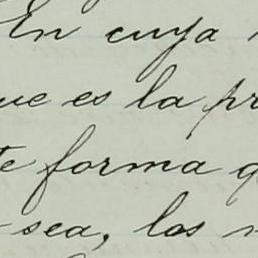 En cuya
ue es la pr
te forma q
sea, los